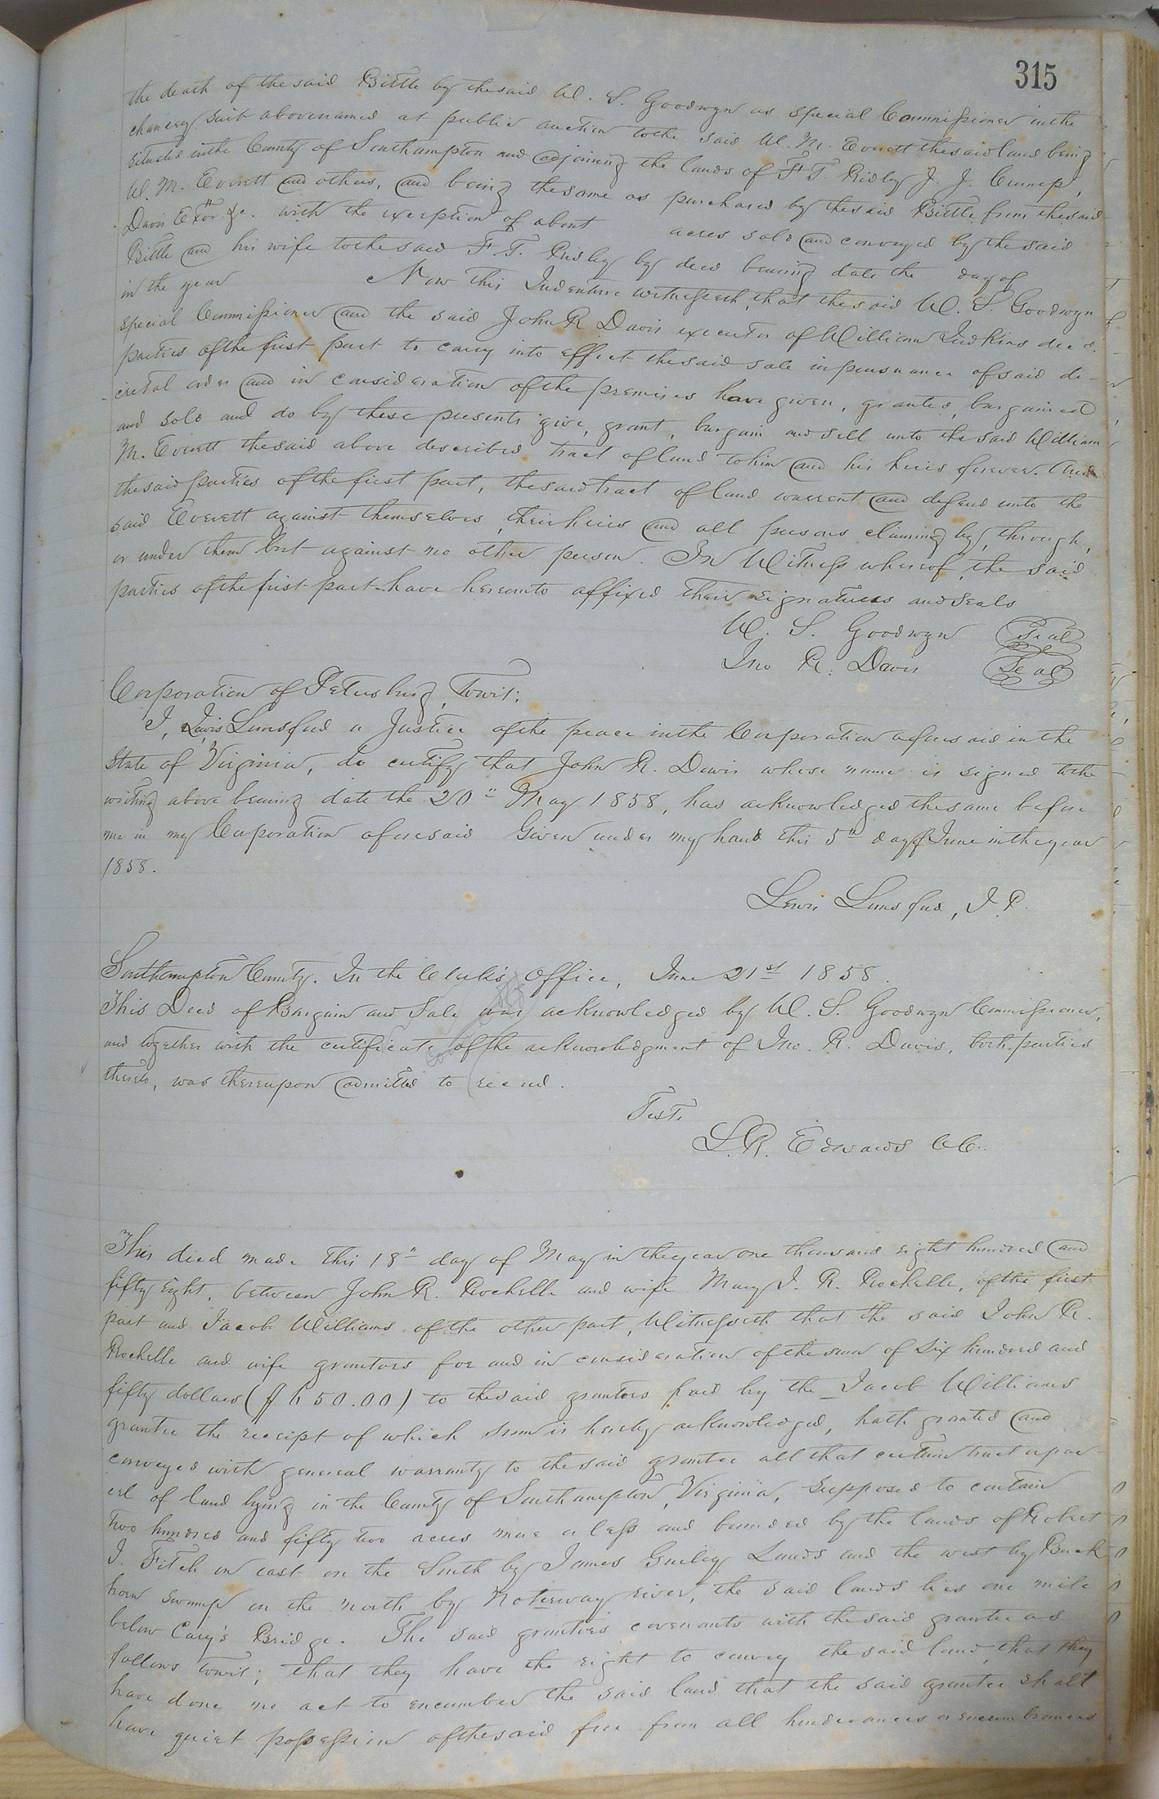 315
the death of the said Bittle by the said W. S. Goodwyn as special Commissioner in the
chancery suit abovenamed at public auction to the said W. M. Everett the said land being
situated in the County of Southampton and adjoining the lands of F. T. Ridley J. J.
W. M. Everett and others, and being the same as purchased by the said Bittle from the said
Davis Exor &c. with the exception of about acres sold and conveyed by the said
Bittle and his wife to the said F. T. Ridley by deed bearing date the day of
in the year Now this Indenture witnesseth, that the said W. S. Goodwyn
special Commissioner and the said John R Davis executor of William Judkins dec'd.
parties of the first part to carry into effect the said sale in pursuance of said de-
cretal order and in consideration of the premises have given, granted, bargained
and sold and do by these presents give, grant, bargain and sell unto the said William
M. Everett the said above described tract of land to him and his heirs forever. And
the said parties of the first part, the said tract of land warrent and defend unto the
said Everett against themselves, their heirs and all persons claiming by, through,
or under them but against no other person. In Witness whereof, the said
parties of the first part have hereunto affixed their signatures and seals
W. S. Goodwyn Seal
Jno R. Davis Seal
Corporation of Petersburg, Towit;
I, Lewis Lunsford a Justice of the peace in the Corporation aforesaid in the
State of Virginia, do certify that John R. Davis whose name is signed to the
writing above bearing date the 20" May 1858, has acknowledged the same before
me in my Corporation aforesaid Given under my hand this 5th day of June in the year
1858.
Lewis Lunsford, J. P.
Southampton County. In the Clerk's Office, June 21st 1858.
This Deed of Bargain and Sale was acknowledged by W. S. Goodwyn Commissioner,
and together with the certificate of the acknowledgment of Jno. R. Davis, both parties
thereto, was thereupon admitted to record.
Test.
L. R. Edwards CC.
This deed made this 18" day of May in the year one thousand eight hundred and
fifty eight, between John R. Rochelle and wife Mary J. R. Rochelle, of the first
part and Jacob Williams of the other part, Witnesseth that the said John R.
Rochelle and wife grantors for and in consideration of the sum of Six hundred and
fifty dollars ($650.00) to the said grantors paid by the Jacob Williams
grantee the receipt of which sum is hereby acknowledged, hath granted and
conveyed with general warranty to the said grantee all that certain tract or par
cel of land lying in the County of Southampton, Virginia, supposed to contain
two hundred and fifty two acres more or less and bounded by the lands of Robert
J. Fitch on east on the South by James Gurley Lands and the west by Buck
horn swamp on the north by Noterway river, the said lands lies one mile
below Cary's Bridge. The said grantors covenants with the said grantee as
follows towit; that they have the right to convey the said land, that they
have done no act to encumber the said land that the said grantee shall
have quiet possession of the said free from all hinderances or encumbrances